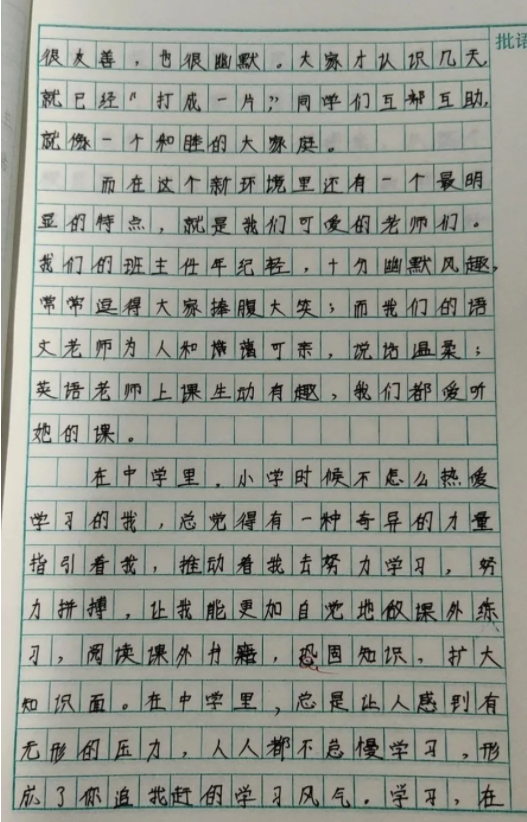 批语
很友善，也很幽默。大家才认识几天，
就已经“打成一片”，同学们互帮互助，
就像一个和睦的大家庭。
而在这个新环境里还有一个最明
显的特点，就是我们可爱的老师们。
我们的班主任年纪轻，十分幽默风趣，
常常逗得大家捧腹大笑；而我们的语
文老师为人和蔼可亲，说话温柔；
英语老师上课生动有趣，我们都爱听
她的课。
在中学里，小学时候不怎么热爱
学习的我，总觉得有一种奇异的力量
指引着我，推动着我去努力学习，努
力拼搏，让我能更加自觉地做课外练
习，阅读课外书籍，恐固知识，扩大
知识面。在中学里，总是让人感到有
无形的压力，人人都不怠慢学习，形
成了你追我赶的学习风气。学习，在